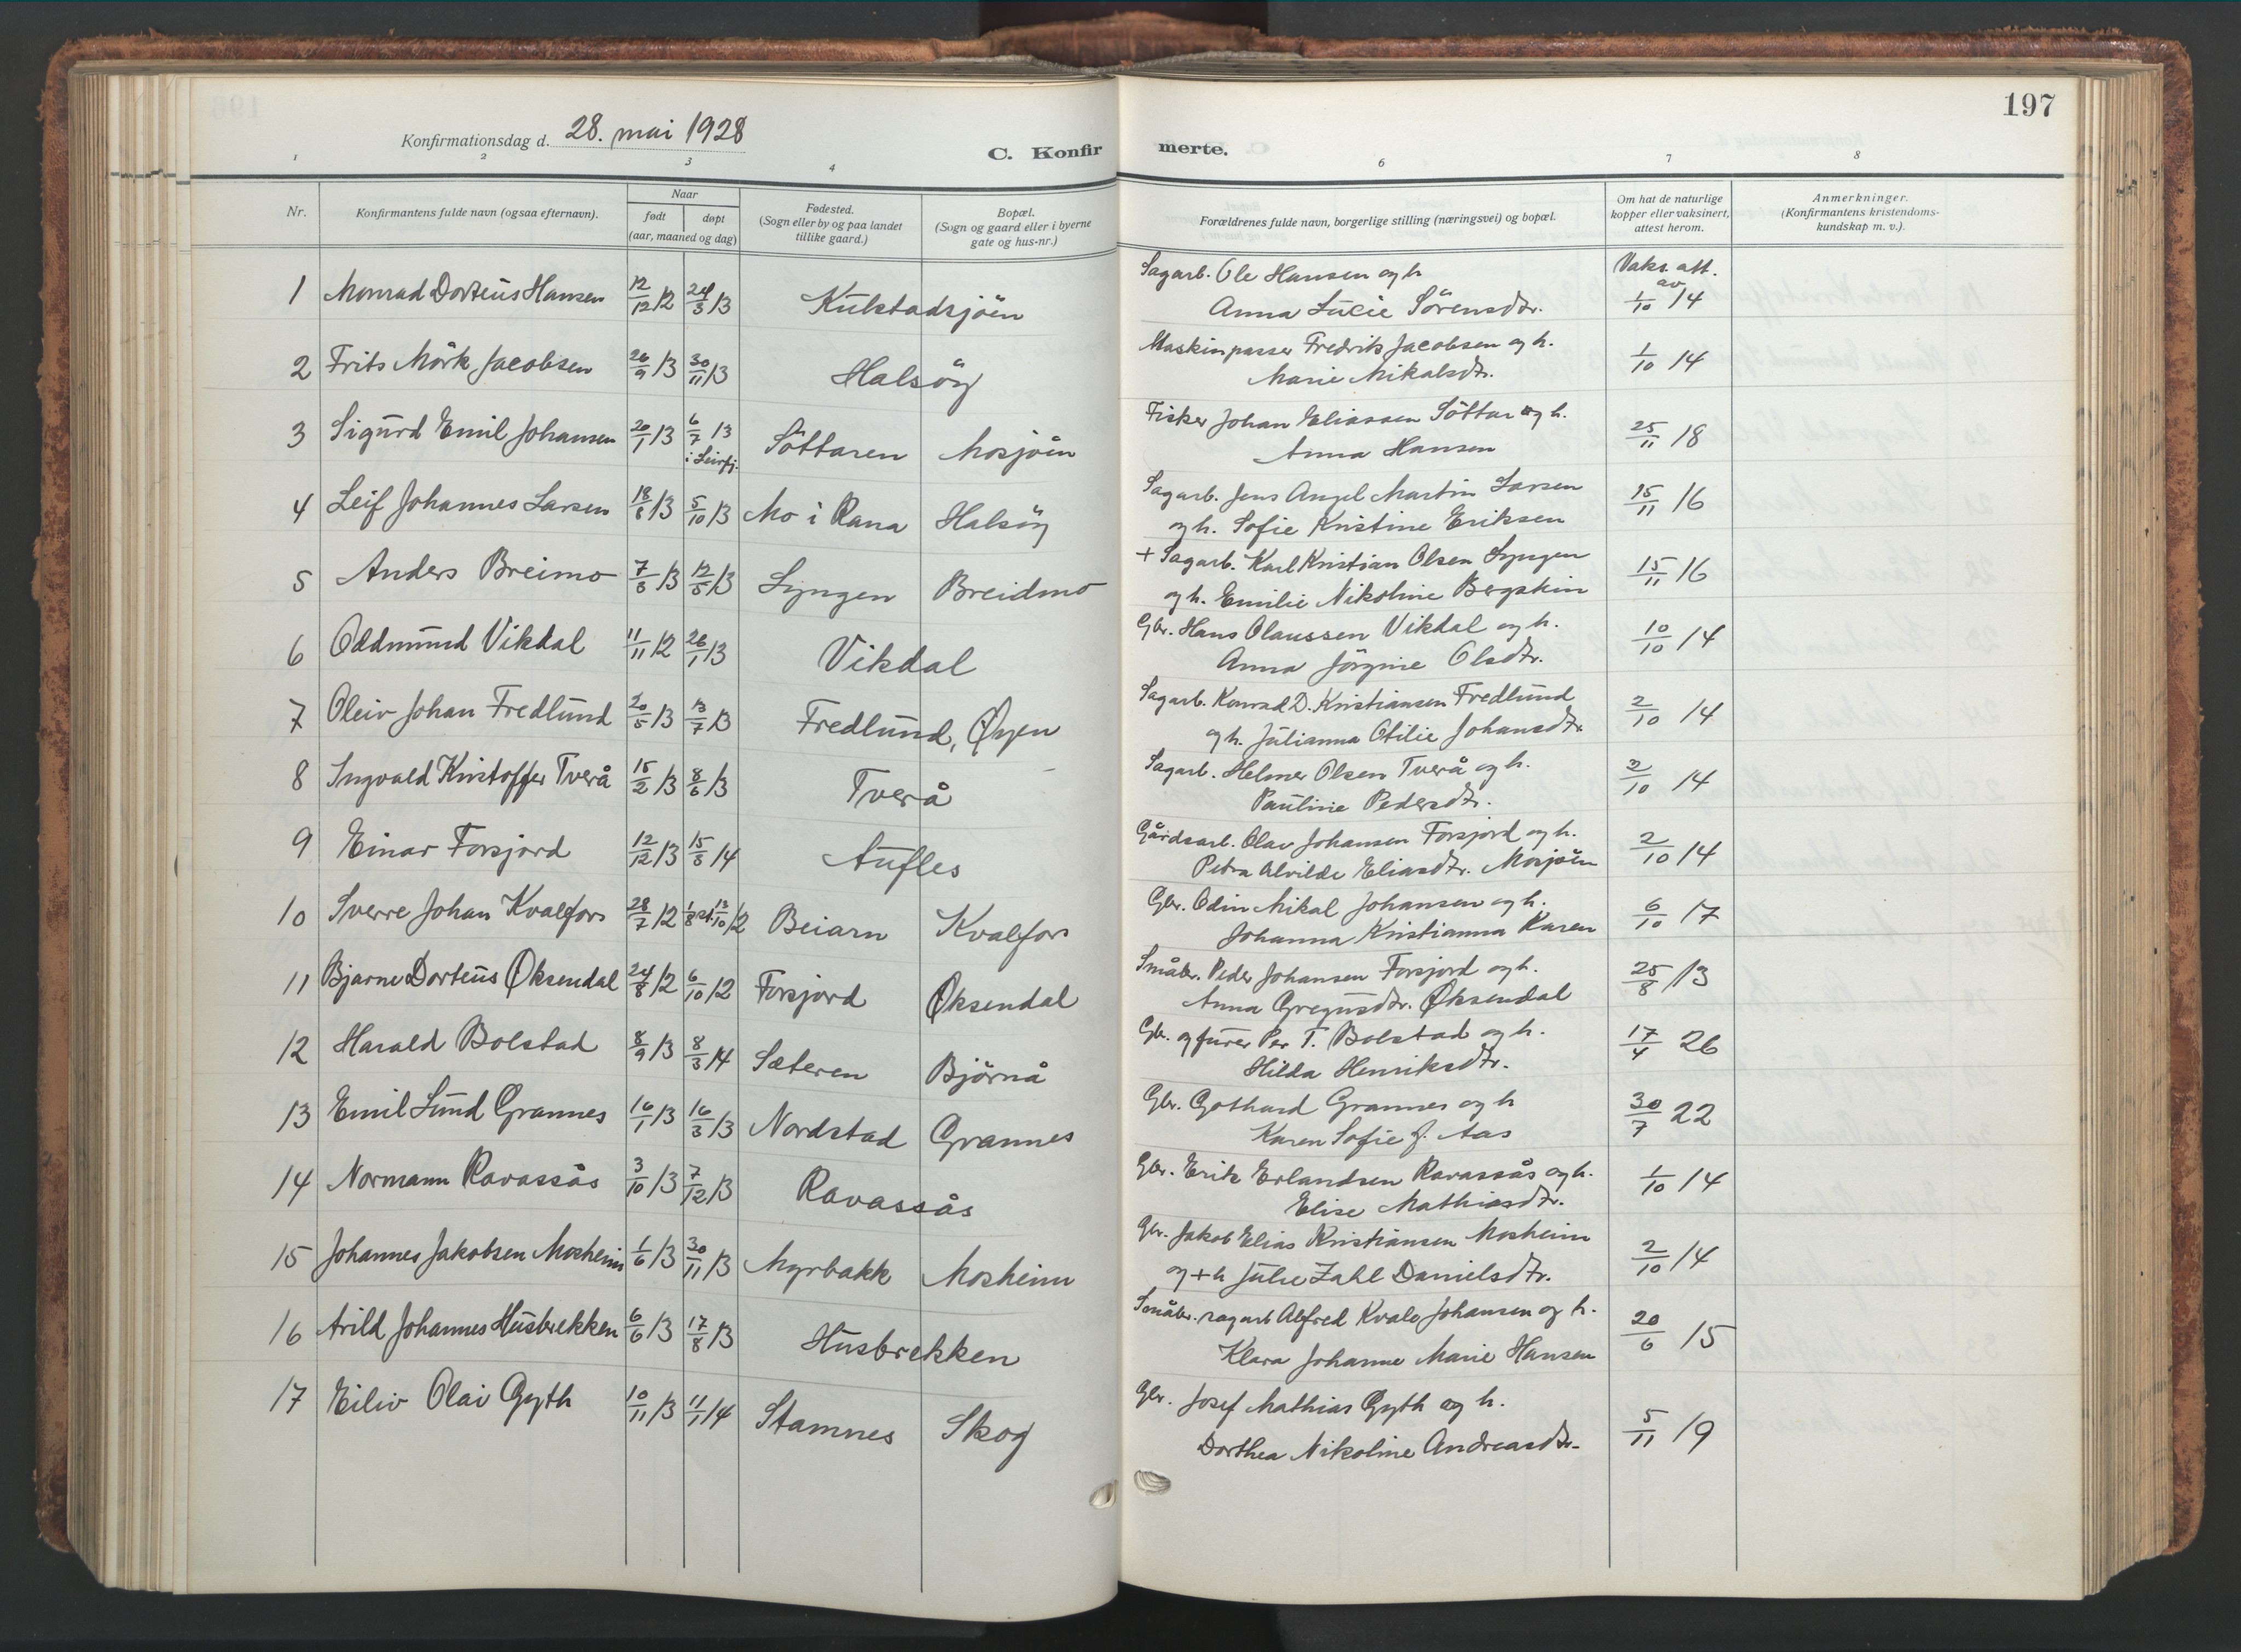 197
Konfirmationsdag d. 28. mai 1928
C. Konfirmerte.
1 2 3 4 6 7 8
Nr.
Konfirmantens fulde navn (ogsaa efternavn).
Naar
født døpt
(aar, maaned og dag)
Fødested.
(Sogn eller by og paa landet
tillike gaard.)
Bopæl.
(Sogn og gaard eller i byerne
gate og hus-nr.)
Forældrenes fulde navn, borgerlige stilling (næringsvei) og bopæl.
Om hat de naturlige
kopper eller vaksinert,
attest herom.
Anmerkninger.
(Konfirmantens kristendoms-
kundskap m. v.).
1 Monrad Dorteus Hansen 12/12 12 24/3 13 Kulstadsjöen Sagarb. Ole Hansen og h Vaks. att. av
Anna Lucie Sörensdtr. 1/10 14
2 Frits Mörk Jacobsen 26/9 13 30/11 13 Halsöy Maskinpasser Fredrik Jacobsen og h.
Marie Mikalsdtr. 1/10 14
3 Sigurd Emil Johansen 20/1 13 6/7 13 i Leirfj. Söttaren Mosjöen Fisker Johan Eliassen Söttar og h.
Anna Hansen 25/11 18
4 Leif Johannes Larsen 18/8 13 5/10 13 Mo i Rana Halsöy Sagarb. Jens Angel Martin Larsen
og h. Sofie Kristine Eriksen 15/11 16
5 Anders Breimo 7/3 13 12/5 13 Lyngen Breidmo + Sagarb. Karl Kristian Olsen Lyngen
og h. Emilie Nikoline Bergskin 15/11 16
6 Oddmund Vikdal 11/11 12 26/1 13 Vikdal Gbr. Hans Olaussen Vikdal og h.
Anna Jörgine Olsdtr. 10/10 14
7 Oleiv Johan Fredlund 20/5 13 13/7 13 Fredlund, Øyen Sagarb. Konrad D. Kristiansen Fredlund
og h. Julianna Otilie Johansdtr. 2/10 14
8 Ingvald Kristoffer Tverå 15/2 13 8/6 13 Tverå Sagarb. Helmer Olsen Tverå og h.
Pauline Pedersdtr. 2/10 14
9 Einar Forsjord 12/12 13 15/3 14 Aufles Gårdsarb. Olav Johansen Forsjord og h.
Petra Alvilde Eliasdtr. Mosjöen 2/10 14
10 Sverre Johan Kvalfors 28/7 12 1/8 st. 13/10 12 Beiarn Kvalfors Gbr. Odin Mikal Johansen og h.
Johanna Kristianna Karen 6/10 17
11 Bjarne Dorteus Øksendal 24/8 12 6/10 12 Forsjord Øksendal Småbr. Peder Johansen Forsjord og h.
Anna Gregusdtr. Øksendal 25/8 13
12 Harald Bolstad 8/9 13 8/3 14 Sæteren Björnå Gbr. og furer Per T. Bolstad og h.
Hilda Henriksdtr. 17/4 26
13 Emil Lund Grannes 16/1 13 16/3 13 Nordstad Grannes Gbr. Gothard Grannes og h
Karen Sofie f. Aas 30/7 22
14 Normann Ravassås 3/10 13 7/12 13 Ravassås Gbr. Erik Erlandsen Ravassås og h.
Elise Mathiasdtr. 1/10 14
15 Johannes Jakobsen Mosheim 1/6 13 30/11 13 Myrbakk Mosheim Gbr. Jakob Elias Kristiansen Mosheim
og + h Julie Zahl Danielsdtr. 2/10 14
16 Arild Johannes Husbrekken 6/6 13 17/8 13 Husbrekken Småbr. sagarb Alfred Kvale Johansen og h.
Klara Johanne Marie Hansen 20/6 15
17 Eiliv Olai Gyth 10/11 13 11/1 14 Stamnes Skog Gbr. Josef Mathias Gyth og h.
Dorthea Nikoline Andreasdtr. 5/11 19